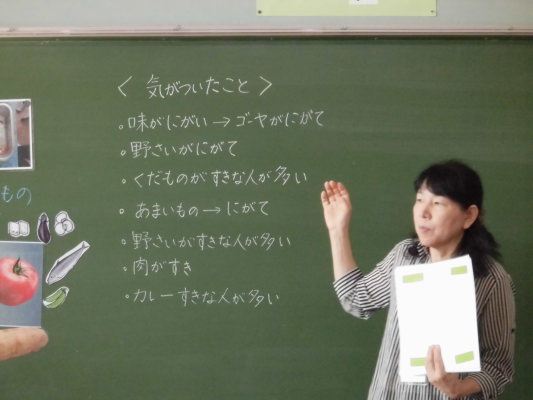 〈 気がついたこと 〉
。味がにがい→ゴーヤがにがて
。野さいがにがて
。くだものがすきな人が多い
。あまいもの→にがて
。野さいがすきな人が多い
。肉がすき
。カレーすきな人が多い
もの